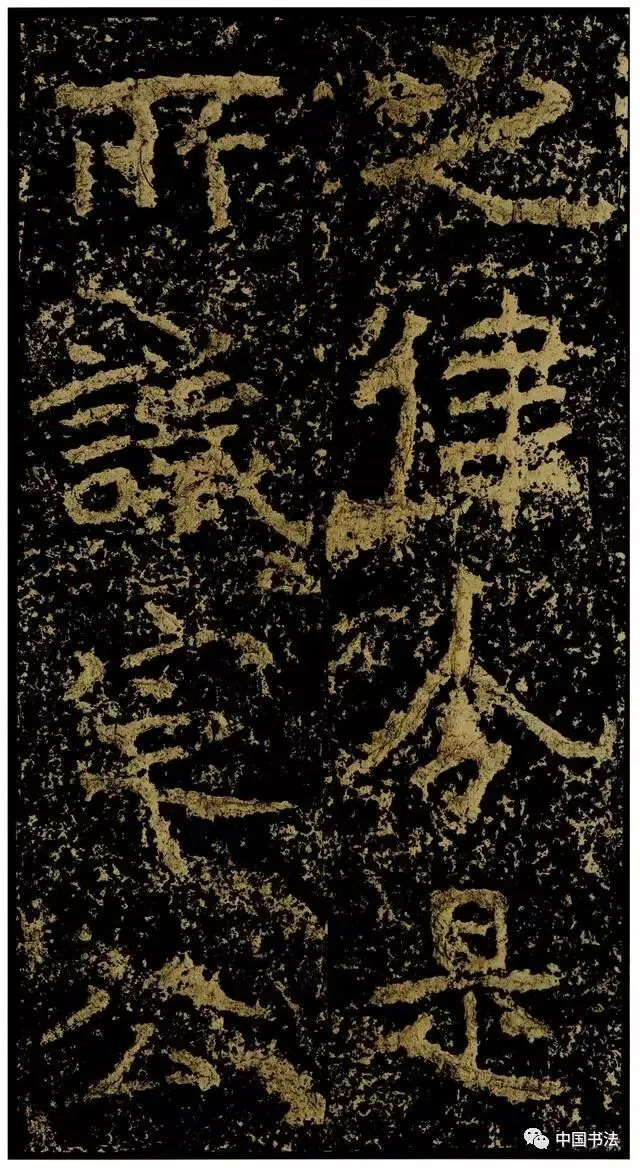 之律分是
所議定公
中国书法